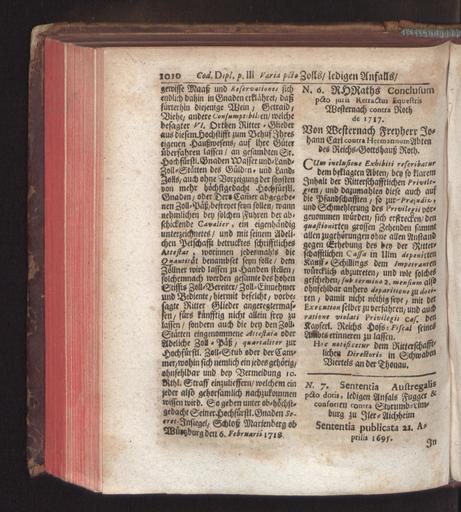 1010 Cod. Dipl. p. III Varia pcto Zolls/ ledigen Anfalls/
gewisse Maaß und Reservationes sich
endlich dahin in Gnaden erklähret, daß
fürterhin diejenge Wein, Getraid,
Viehe, andere Consumptibilien, welche
besagter VI. Orthen Ritter-Glieder
aus diesem Hochstifft zum Behuf Ihres
eigenen Haußwesens, auf ihre Güter
abführen lassen / an gesambten Sr.
Hochfürstl. Gnaden Wasser und Land-
Zoll-Stätten des Gülden- und Land-
Zolls, auch ohne Vorzeigung der sonsten
von mehr höchstgedacht Hochfürstl.
Gnaden, oder Dero Camer abgegebe-
nen Zoll-Päß, befreyet seyn sollen, wann
nehmlichen bey solchen Fuhren der ab-
schickende Cavalier, ein eigenhändig
unterzeichnetes, und mit seinem Adeli-
chen Petschafft bedrucktes schrifftliches
Attestat, worinnen jedesmahls die
Quantität benambset seyn solle, dem
Zöllner wird lassen zu Handen stellen,
solchemnach werden gesambte des hohen
Stiffts Zoll-Bereiter, Zoll-Einnehmer
und Bediente, hiermit befelcht, vorbe-
sagte Ritter Glieder angeregtermas-
sen, fürs künfftig nicht allein frey zu
lassen / sondern auch die bey den Zoll-
Stätten eingenommene Attestata oder
Adeliche Zoll-Päß, quartaliter zur
Hochfürstl. Zoll-Stub oder der Cam-
mer, wohin sich nemlich ein jedes gehörig,
ohnfehlbar und bey Vermeidung 10.
Rthl. Straff einzulieffern, welchem ein
jeder also gehorsamlich nachzukommen
wissen wird. So geben unter ob-höchst-
gedacht Seiner Hochfürstl. Gnaden Se-
cret-Insiegel, Schloß Marienberg ob
Würtzburg den 6. Februarii 1718.
N. 6. RHRaths Conclusum
pcto juris Retractus Equestris
Westernach contra Roth
de 1717.
Von Westernach Freyherr Jo-
hann Carl contra Hermannum Abten
des Reichs-Gottshauß Roth.
CUm inclusione Exhibiti rescribatur
dem beklagten Abten, bey so klarem
Inhalt der Ritterschafftlichen Privile-
gien, und dazumahlen diese auch auf
die Pfandschafften, so zur Præjudiz-
und Schmehlerung des Privilegii vor-
genommen würden, sich erstrecken, den
quæstionirten grossen Zehenden sammt
allen zugehörungen ohne allen Anstand
gegen Erhebung des bey der Ritter-
schafftlichen Cassa in Ulm deponirten
Kauff-Schillings dem Impetranten
würcklich abzutreten, und wie solches
geschehen, sub termino 2. mensium also
ohnfehlbar anhero deparitione zu doci-
ren, damit nicht nöthig seye, mit der
Execution selber zu verfahren, und auch
ratione violati Privilegii Cæs. den
Kayserl. Reichs Hofs-Fiscal seines
Ambts erinneren zu lassen.
Hoc notificetur dem Ritterschafft-
lichen Directorio in Schwaben
Viertels an der Thonau.
N. 7. Sententia Austregalis
pcto dotis, ledigen Anfals Fugger &
consorten contra
burg zu Iler-Aichheim
Sententia publicata 21. A-
prilis 1695.
In